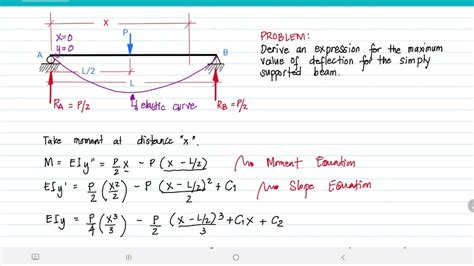 x
x=0
y=0
P
A
B
L/2
L
RA = P/2
RB = P/2
elastic curve
PROBLEM:
Derive an expression for the maximum
value of deflection for the simply
supported beam.
Take moment at distance "x".
M = EIy" = P/2 x - P(x - L/2) Moment Equation
EIy' = P/2 (x²/2) - P(x - L/2)²/2 + C1 Slope Equation
EIy = P/4 (x³/3) - P/2 (x - L/2)³/3 + C1x + C2